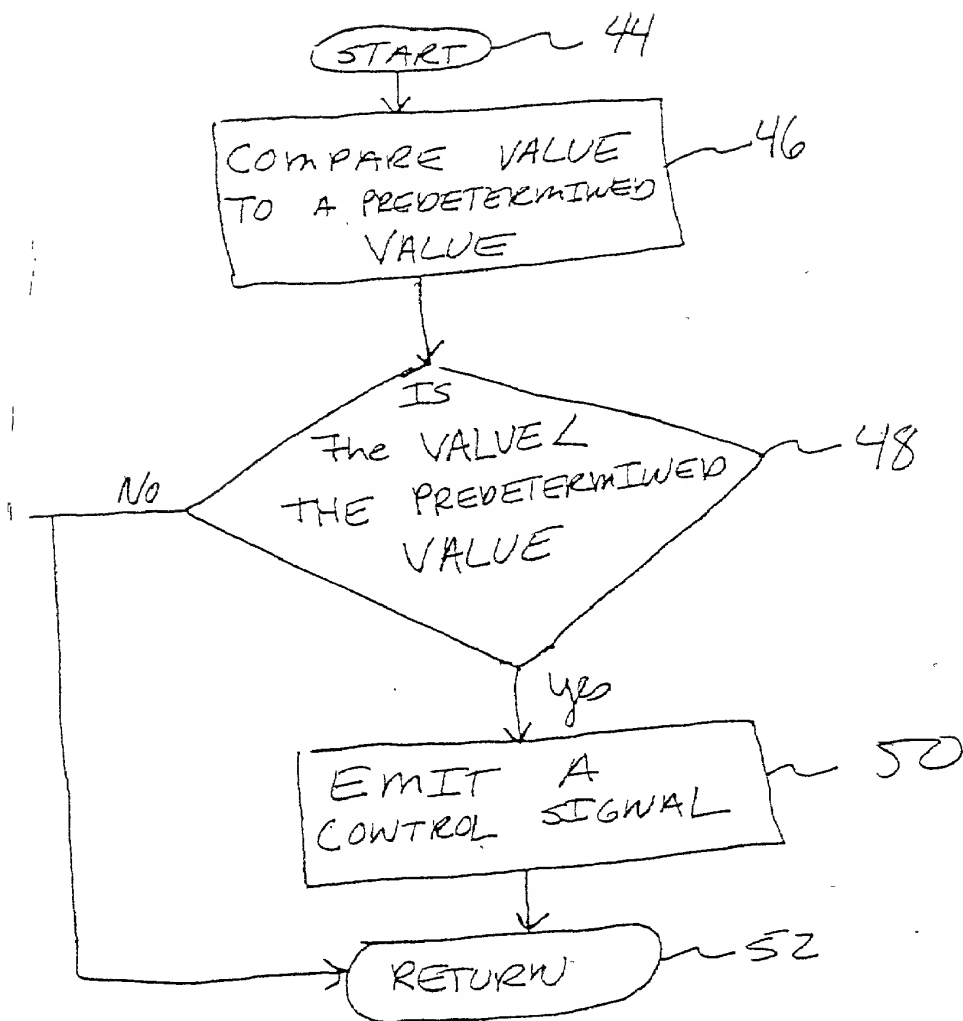 START
44
COMPARE VALUE
TO A PREDETERMINED
VALUE
46
IS
The VALUE <
THE PREDETERMINED
VALUE
48
No
yes
EMIT A
CONTROL SIGNAL
50
RETURN
52